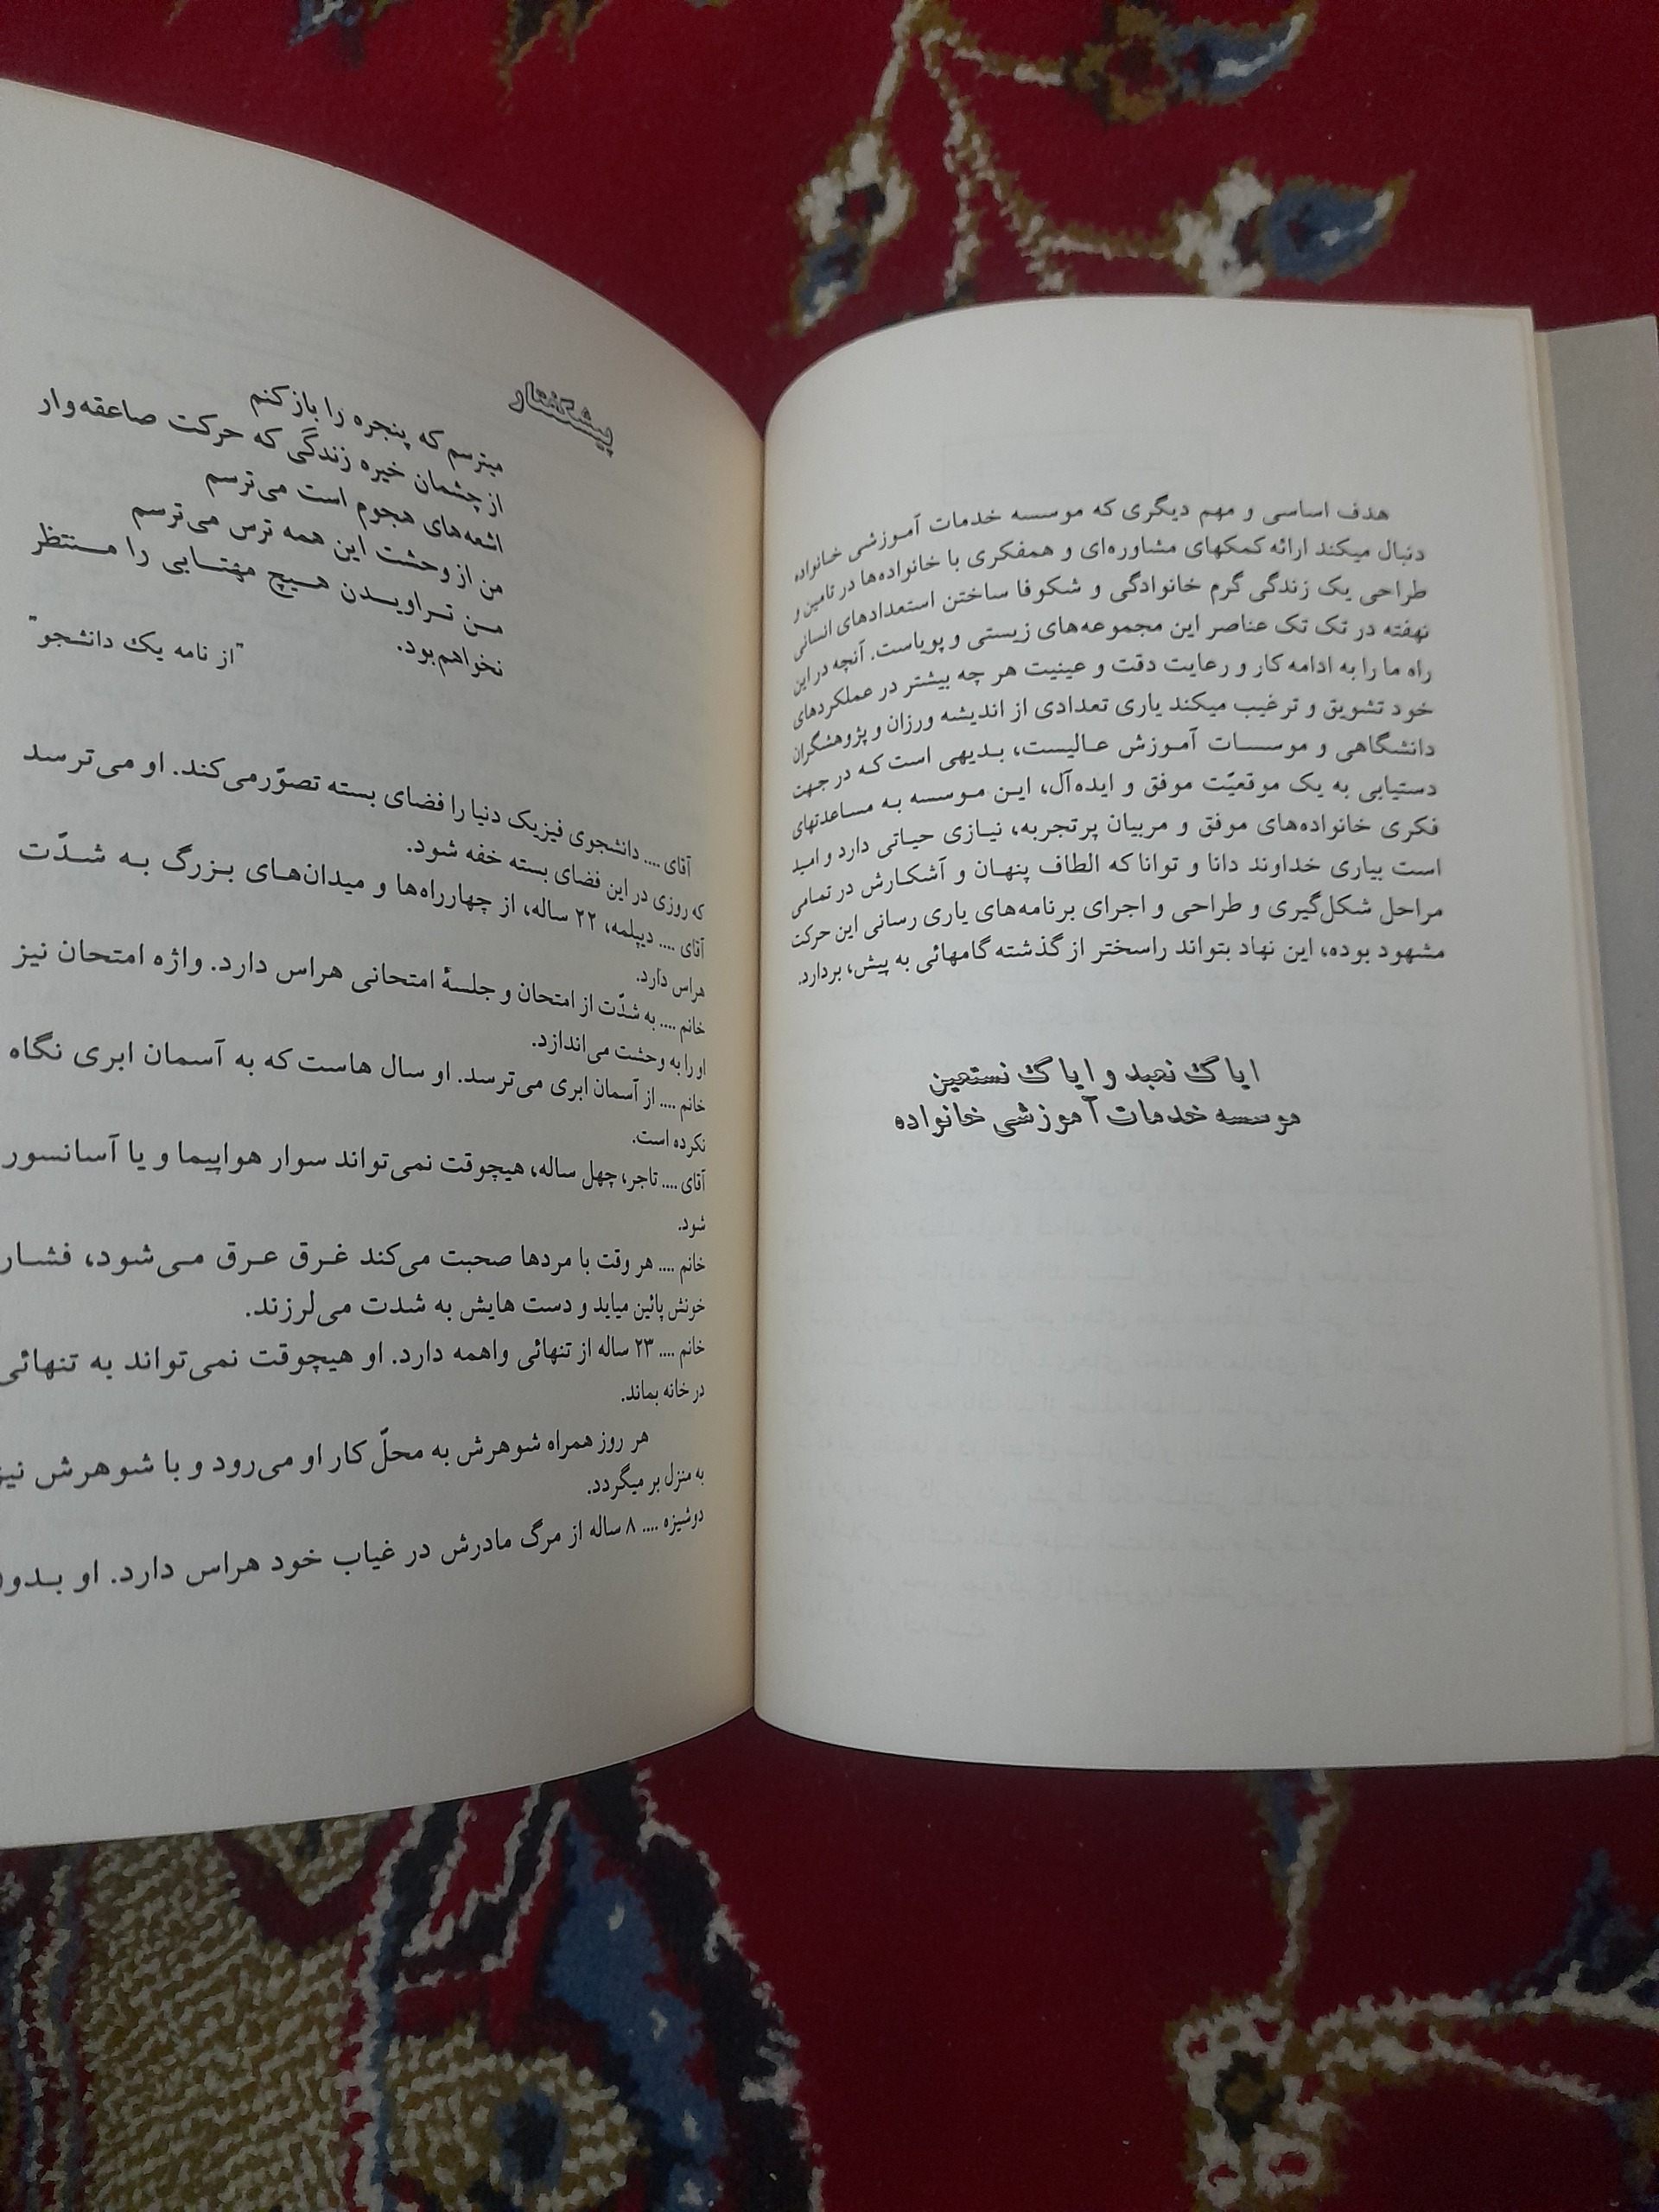 هدف اساسی و مهم دیگری که موسسه خدمات آموزشی خانواده
دنبال میکند ارائه کمکهای مشاوره‌ای و همفکری با خانواده‌ها در تامین و
طراحی یک زندگی گرم خانوادگی و شکوفا ساختن استعدادهای انسانی
نهفته در تک تک عناصر این مجموعه‌های زیستی و پویاست. آنچه در این
راه ما را به ادامه کار و رعایت دقت و عینیت هر چه بیشتر در عملکردهای
خود تشویق و ترغیب میکند یاری تعدادی از اندیشه ورزان و پژوهشگران
دانشگاهی و موسسات آموزش عالیست، بدیهی است که در جهت
دستیابی به یک موقعیّت موفق و ایده‌آل، این موسسه به مساعدتهای
فکری خانواده‌های موفق و مربیان پرتجربه، نیازی حیاتی دارد و امید
است بیاری خداوند دانا و توانا که الطاف پنهان و آشکارش در تمامی
مراحل شکل‌گیری و طراحی و اجرای برنامه‌های یاری رسانی این حرکت
مشهود بوده، این نهاد بتواند راسختر از گذشته گامهائی به پیش، بردارد.
ایاک نعبد و ایاک نستعین
موسسه خدمات آموزشی خانواده
پیشگفتار
میترسم که پنجره را باز کنم
از چشمان خیره زندگی که حرکت صاعقه‌وار
اشعه‌های هجوم است می‌ترسم
من از وحشت این همه ترس می‌ترسم
من تراویدن هیچ مهتابی را منتظر
نخواهم‌بود.
"از نامه یک دانشجو"
آقای .... دانشجوی فیزیک دنیا را فضای بسته تصوّر می‌کند. او می‌ترسد
که روزی در این فضای بسته خفه شود.
آقای .... دیپلمه، ۲۲ ساله، از چهارراه‌ها و میدان‌های بزرگ به شدّت
هراس دارد.
خانم .... به شدّت از امتحان و جلسهٔ امتحانی هراس دارد. واژه امتحان نیز
او را به وحشت می‌اندازد.
خانم .... از آسمان ابری می‌ترسد. او سال هاست که به آسمان ابری نگاه
نکرده است.
آقای .... تاجر، چهل ساله، هیچوقت نمی‌تواند سوار هواپیما و یا آسانسور
شود.
خانم .... هر وقت با مردها صحبت می‌کند غرق عرق می‌شود، فشار
خونش پائین میاید و دست هایش به شدت می‌لرزند.
خانم .... ۲۳ ساله از تنهائی واهمه دارد. او هیچوقت نمی‌تواند به تنهائی
در خانه بماند.
هر روز همراه شوهرش به محلّ کار او می‌رود و با شوهرش نیز
به منزل بر میگردد.
دوشیزه .... ۸ ساله از مرگ مادرش در غیاب خود هراس دارد. او